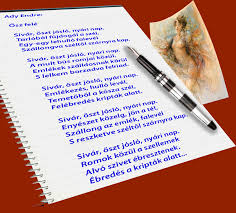 Ady Endre:
Ősz felé
Sivár, őszt jósló, nyári nap,
Tarlóból fújdogál a szél,
Egy-egy lehulló falevél
Szállongva széltől szárnyra kap.
Sivár, őszt jósló, nyári nap,
A mult bús romjai körül
Emlékek szálldosnak körül
S lelkem borzadva felriad.
Sivár, őszt jósló, nyári nap,
Emlékezés, hulló levél,
Temetőből a kósza szél,
Felébredés kripták alatt...
Sivár, őszt jósló, nyári nap,
Enyészet közelg, jön a tél,
Szállong az emlék, falevél
S reszketve széltől szárnyra kap...
Sivár, őszt jósló, nyári nap,
Romok közül a szellemek
Alvó szivet ébresztenek,
Ébredés a kripták alatt...